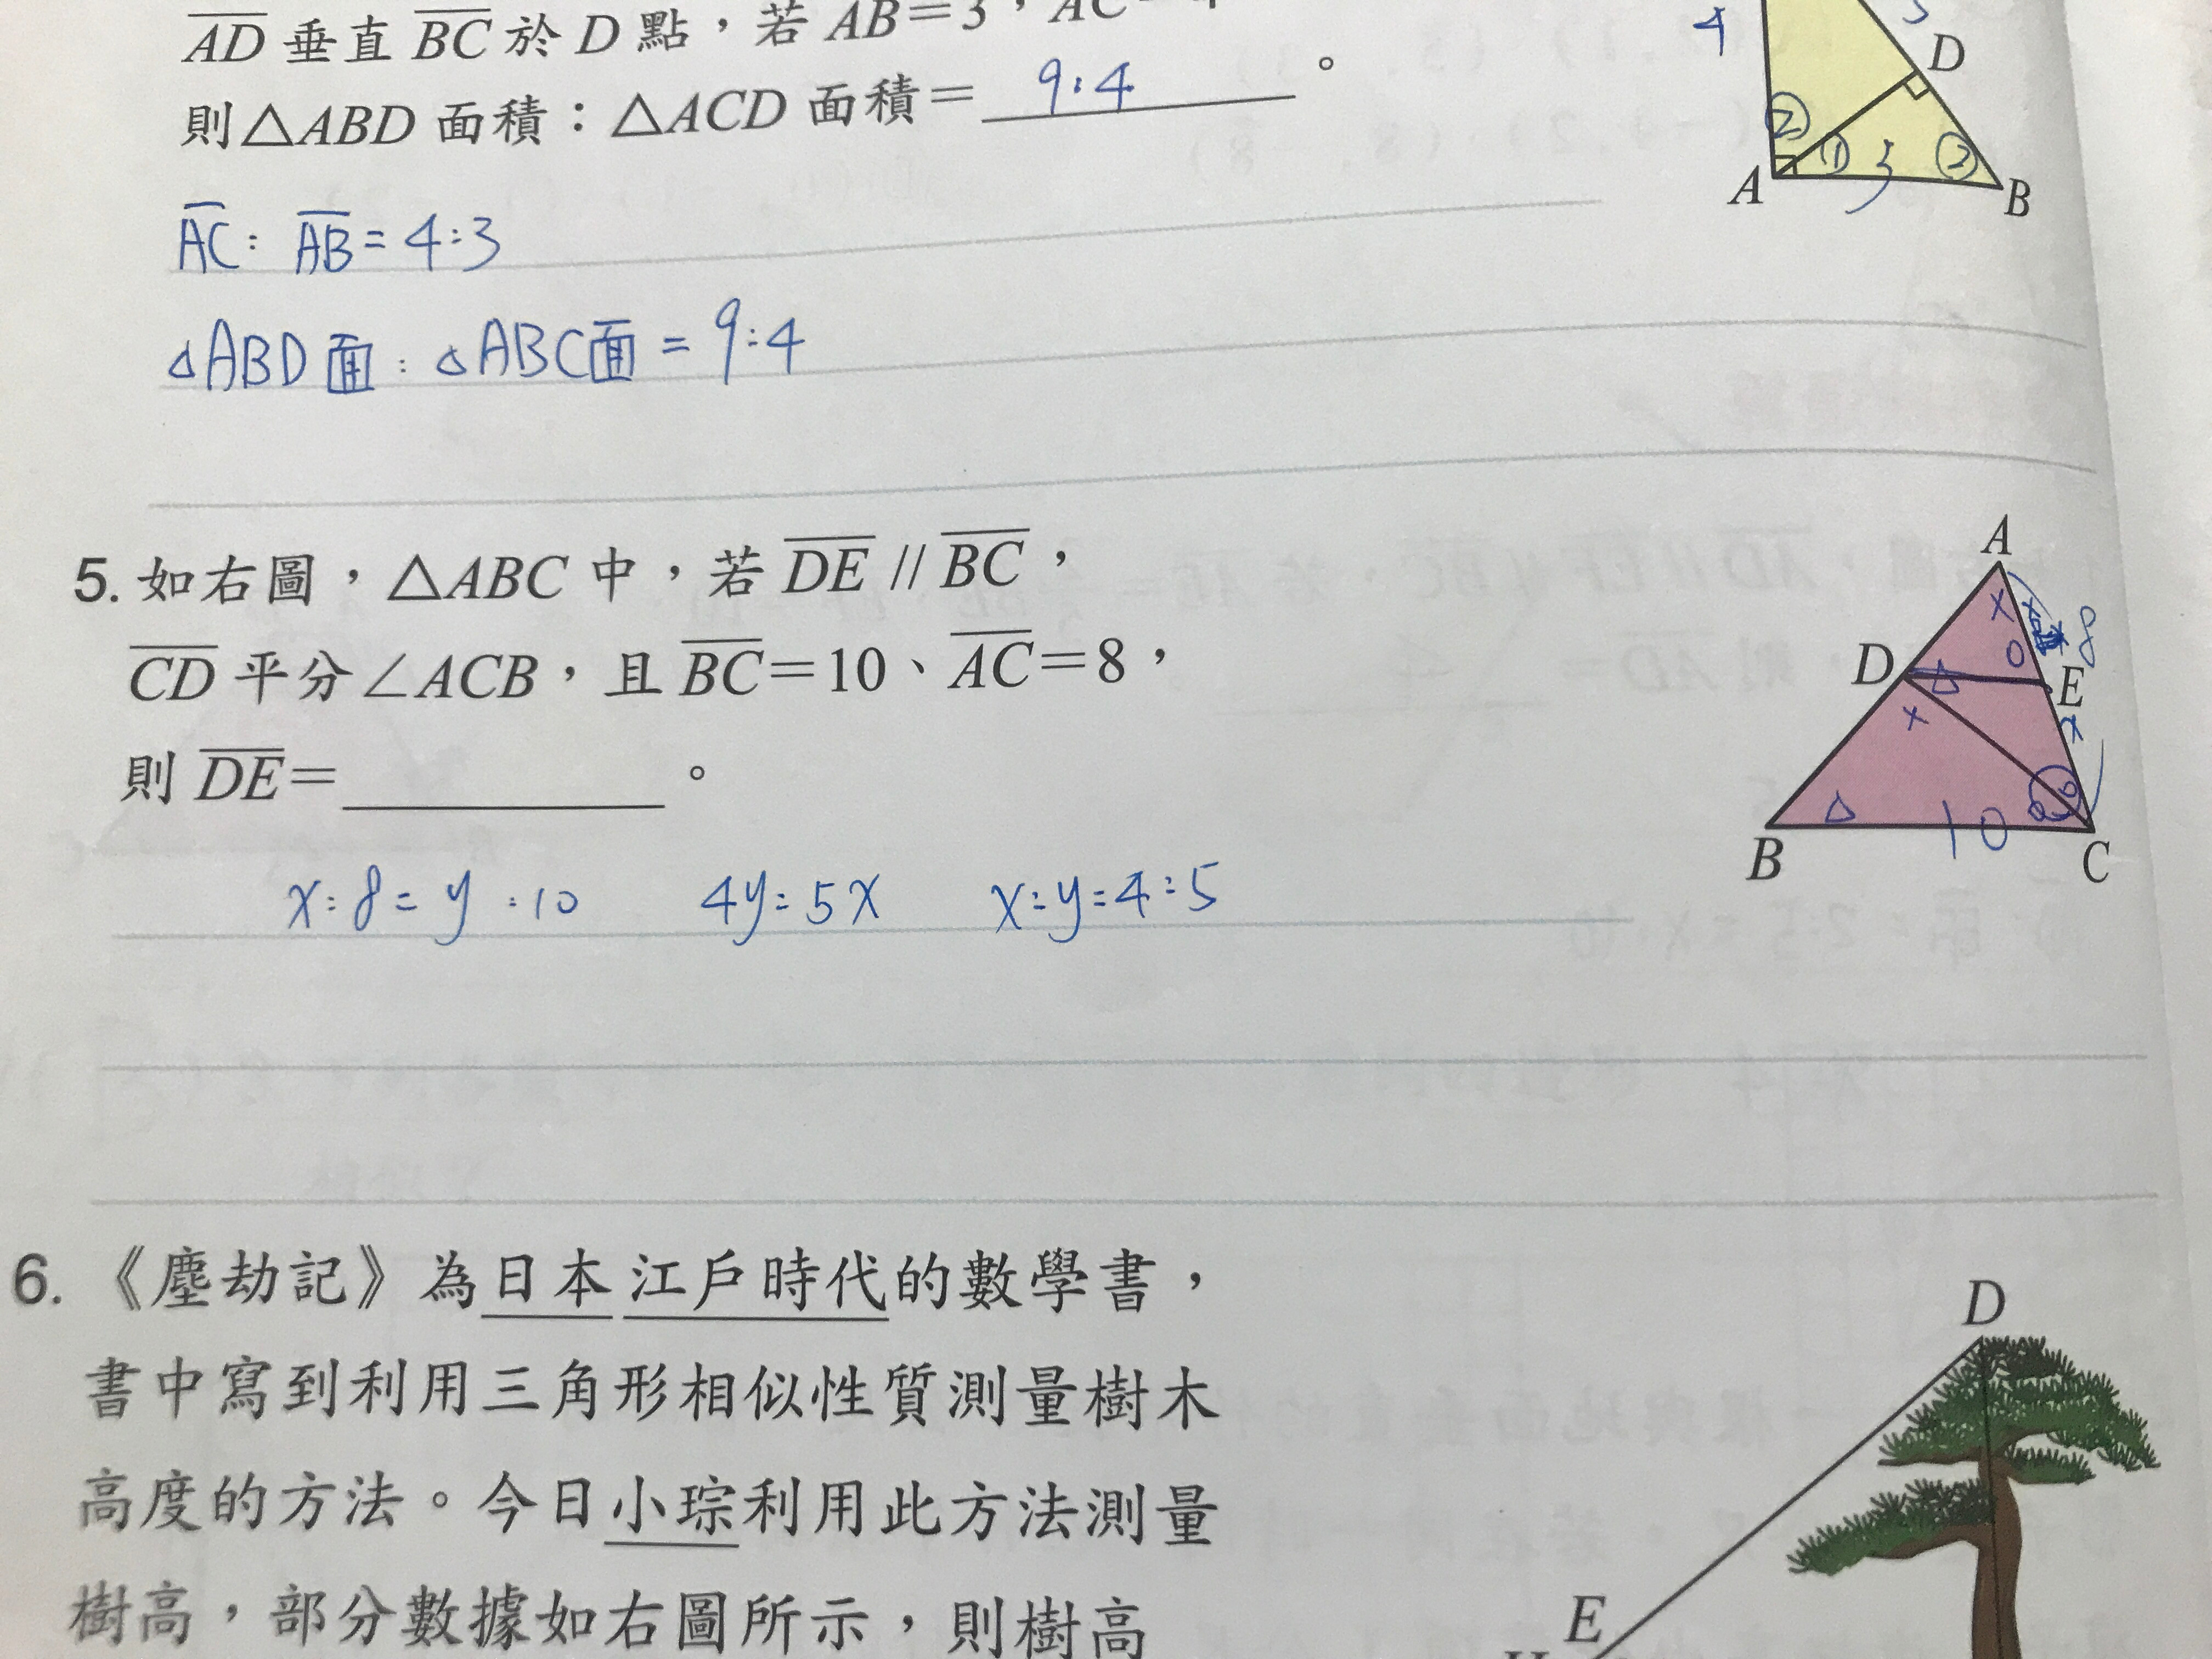 AD 垂直 BC 於 D 點，若 AB=3，AC=4
則△ABD 面積：△ACD 面積= 9:4 。
4
D
② ① 3 ②
A
B
AC : AB = 4:3
△ABD面 : △ABC面 = 9:4
5. 如右圖，△ABC 中，若 DE // BC，
CD 平分∠ACB，且 BC=10、AC=8，
則 DE= 。
A
× x 8
D △ ○ E
× x
△ 10 ○ ○
B C
x:8=y:10 4y=5x x:y=4:5
6. 《塵劫記》為日本江戶時代的數學書，
書中寫到利用三角形相似性質測量樹木
高度的方法。今日小琮利用此方法測量
樹高，部分數據如右圖所示，則樹高
D
E